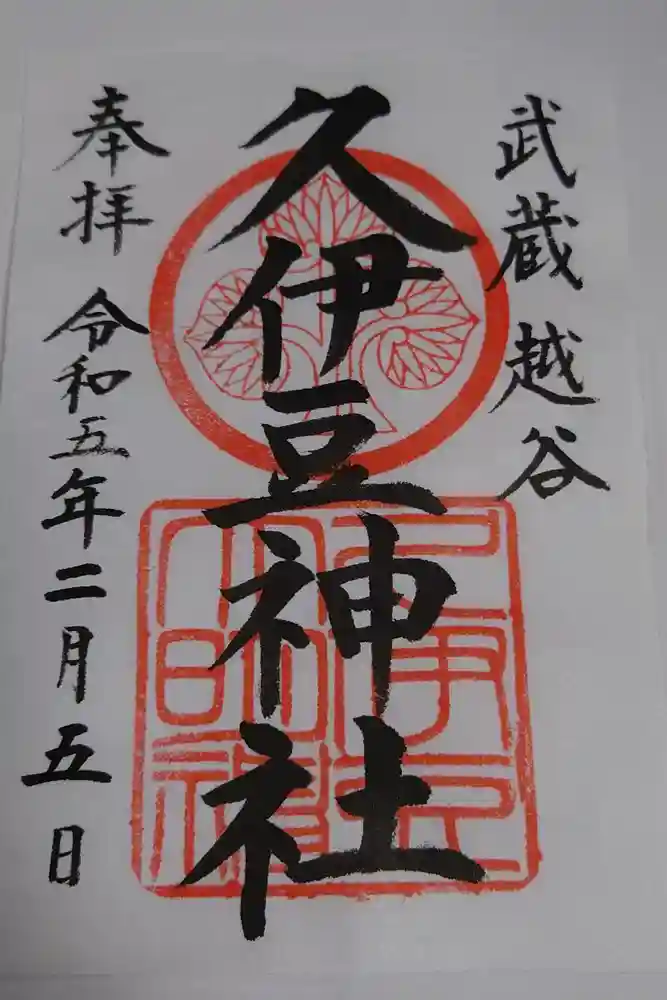 武蔵越谷
久伊豆神社
奉拝
令和五年二月五日